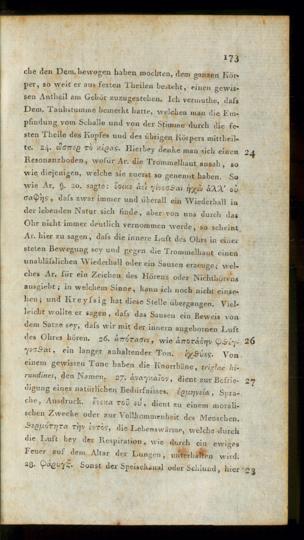 173
che den Dem. bewogen haben mochten, dem ganzen Kör-
per, so weit er aus festen Theilen besteht, einen gewis-
sen Antheil am Gehör zuzugestehen. Ich vermuthe, dass
Dem. Taubstumme bemerkt hatte, welchen man die Em-
pfindung vom Schalle und von der Stimme durch die fe-
sten Theile des Kopfes und des übrigen Körpers mittheil-
te. 24. ὥσπερ τὸ κέρας. Hierbey denke man sich einen 24
Resonanzboden, wofür Ar. die Trommelhaut ansah, so
wie diejenigen, welche sie zuerst so genannt haben. So
wie Ar. §. 20. sagte: ἔοικε ἀεὶ γίνεσθαι ἠχὼ ἀλλ' οὐ
σαφής, dass zwar immer und überall ein Wiederhall in
der lebenden Natur sich finde, aber von uns durch das
Ohr nicht immer deutlich vernommen werde, so scheint
Ar. hier zu sagen, dass die innere Luft des Ohrs in einer
steten Bewegung sey und gegen die Trommelhaut einen
unablässlichen Wiederhall oder ein Sausen erzeuge; wel-
ches Ar. für ein Zeichen des Hörens oder Nichthörens
ausgiebt; in welchem Sinne, kann ich noch nicht einse-
hen; und Kreyssig hat diese Stelle übergangen. Viel-
leicht wollte er sagen, dass das Sausen ein Beweis von
dem Satze sey, dass wir mit der innern angebornen Luft
des Ohres hören. 26. ἀπότασις, wie ἀποτάδην φθέγ- 26
γεσθαι, ein langer anhaltender Ton. ἰχθύες. Von
einem gewissen Tone haben die Knorrhäne, triglae hi-
rundines, den Namen. 27. ἀναγκαῖος, dient zur Befrie- 27
digung eines natürlichen Bedürfnisses. ἑρμηνεία, Spra-
che, Ausdruck. ἕνεκα τοῦ εὖ, dient zu einem morali-
schen Zwecke oder zur Vollkommenheit des Menschen.
θερμότητα τὴν ἐντὸς, die Lebenswärme, welche durch
die Luft bey der Respiration, wie durch ein ewiges
Feuer auf dem Altar der Lungen, unterhalten wird.
28. φάρυγξ. Sonst der Speisekanal oder Schlund, hier 28